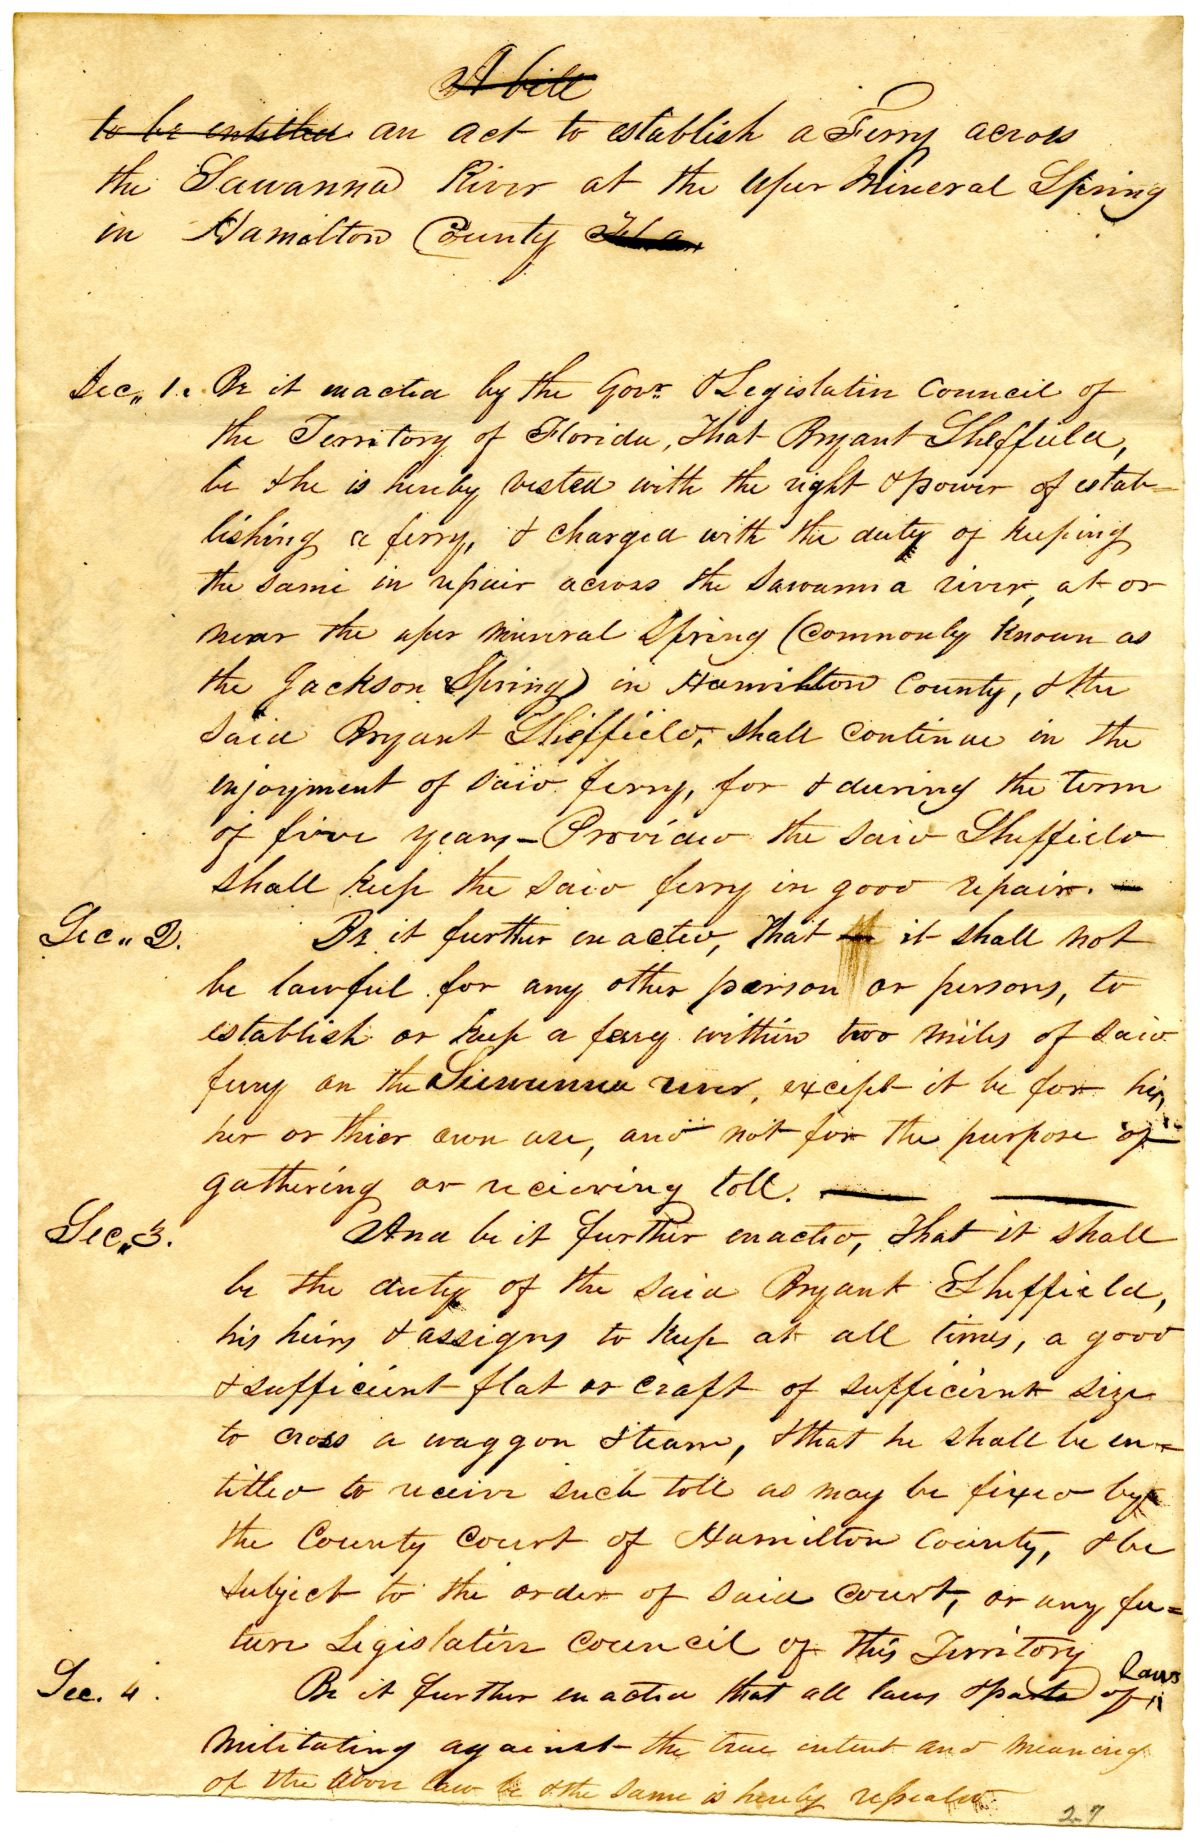 A bill
to be entitled an act to establish a Ferry across
the Sawanna River at the uper Mineral Spring
in Hamilton County Fla.
Sec. 1. Be it enacted by the Govr. & Legislative Council of
the Territory of Florida, That Bryant Sheffield,
be & he is hereby vested with the right & power of estab-
lishing a ferry, & charged with the duty of keeping
the same in repair across the Sawanna river, at or
near the uper mineral Spring (Commonly known as
the Jackson Spring) in Hamilton County, & the
said Bryant Sheffield, shall continue in the
enjoyment of said ferry, for & during the term
of five years - Provided the said Sheffield
shall keep the said ferry in good repair. -
Sec. 2. Be it further enacted, that it shall not
be lawful for any other person or persons, to
establish or keep a ferry within two miles of said
ferry on the Suwanna river, except it be for his,
her or thier own use, and not for the purpose of
gathering or recieving toll.
Sec. 3. And be it further enacted, That it shall
be the duty of the said Bryant Sheffield,
his heirs & assigns to keep at all times, a good
& sufficient flat or craft of sufficient size
to cross a waggon & team, & that he shall be en=
titled to receive such toll as may be fixed by
the County Court of Hamilton County, & be
subject to the order of said Court, or any fu=
ture Legislative Council of this Territory
Sec. 4. Be it further enacted that all laws & parts of laws
militating against the true intent and meaning
of the above law be & the same is hereby repealed
27